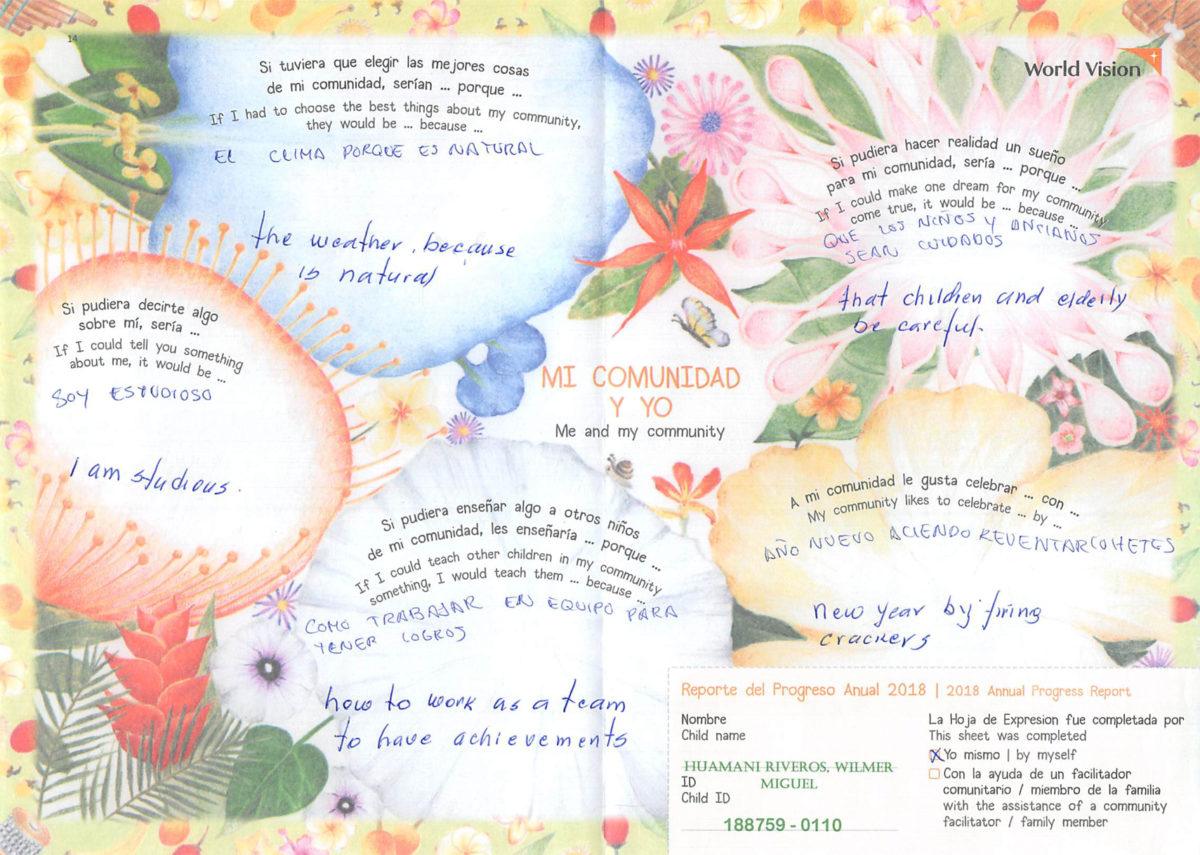 14
Si tuviera que elegir las mejores cosas
de mi comunidad, serían ... porque ...
If I had to choose the best things about my community,
they would be ... because ...
EL CLIMA PORQUE ES NATURAL
the weather, because
is natural
World Vision
Si pudiera hacer realidad un sueño
para mi comunidad, sería ... porque ...
If I could make one dream for my community
come true, it would be ... because ...
QUE LOS NIÑOS Y ANCIANOS
SEAN CUIDADOS
that children and elderly
be careful.
Si pudiera decirte algo
sobre mí, sería ...
If I could tell you something
about me, it would be ...
SOY ESTUDIOSO
I am studious.
MI COMUNIDAD
Y YO
Me and my community
Si pudiera enseñar algo a otros niños
de mi comunidad, les enseñaría ... porque ...
If I could teach other children in my community
something, I would teach them ... because ...
COMO TRABAJAR EN EQUIPO PARA
TENER LOGROS
how to work as a team
to have achievements
A mi comunidad le gusta celebrar ... con ...
My community likes to celebrate ... by ...
AÑO NUEVO ACIENDO REVENTAR COHETES
new year by firing
crackers
Reporte del Progreso Anual 2018 | 2018 Annual Progress Report
Nombre
Child name
HUAMANI RIVEROS, WILMER
MIGUEL
ID
Child ID
188759 - 0110
La Hoja de Expresion fue completada por
This sheet was completed
Yo mismo | by myself
Con la ayuda de un facilitador
comunitario / miembro de la familia
with the assistance of a community
facilitator / family member